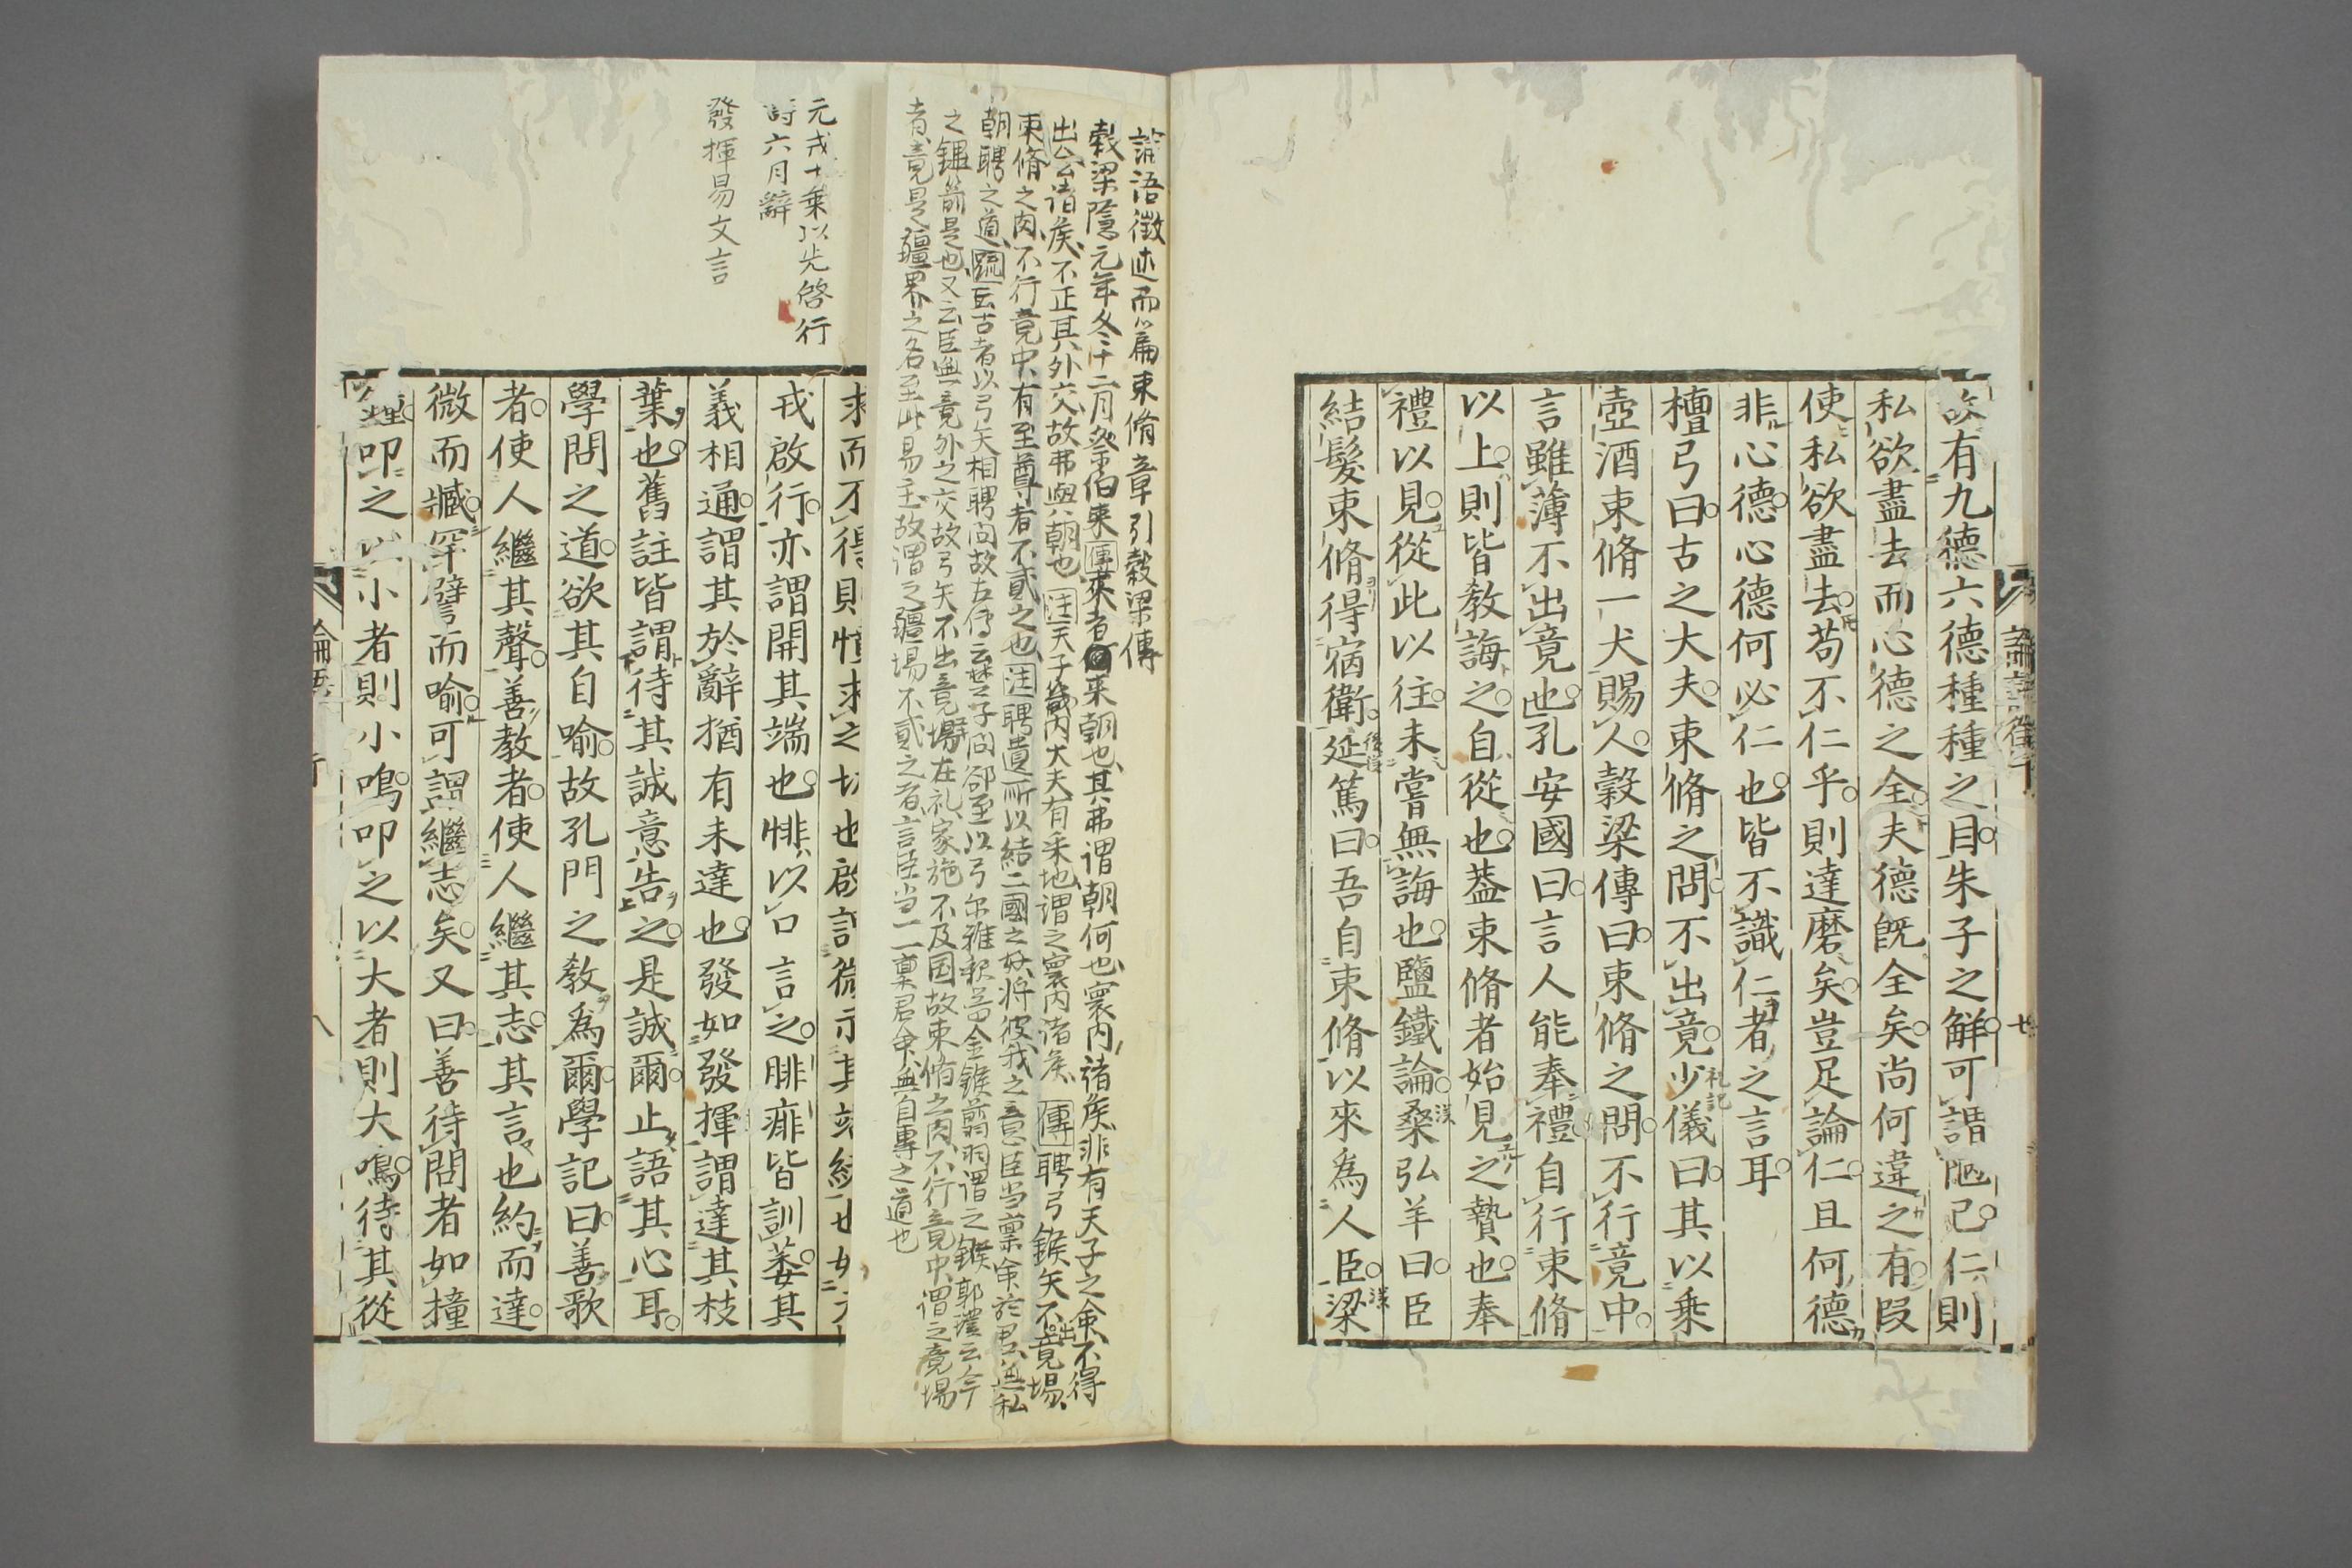 故有九德六德種種之目朱子之觧可謂陋已仁則
私欲盡去而心德之全夫德旣全矣尚何違之有叚
使私欲盡去苟不仁乎則達磨矣豈足論仁且何德
非心德心德何必仁也皆不識仁者之言耳
檀弓曰古之大夫束脩之問不出竟少儀曰其以乗
礼記
壺酒束脩一犬賜人穀梁傳曰束脩之問不行竟中
言雖薄不出竟也孔安國曰言人能奉禮自行束脩
以上則皆敎誨之自從也葢束脩者始見之贄也奉
禮以見從此以往未嘗無誨也鹽鐵論桑弘羊曰臣
漢
結髮束脩得宿衛延篤曰吾自束脩以來爲人臣梁
後漢
漢
論語徴述而篇束脩章引穀梁傳
穀梁隱元年冬十二月祭伯来傳来者来朝也其弗谓朝何也寰内诸矦非有天子之命不得
出会诸矦不正其外交故弗與朝也注天子畿内大夫有采地谓之寰内诸矦傳聘弓鍭矢不出竟場
束脩之肉不行竟中有至尊者不貳之也注聘遺所以結二國之好将彼我之意臣当禀命於君無私
朝聘之道疏云古者以弓矢相聘问故左傳云楚子问郤至以弓尔雅釈器云金鏃翦羽谓之鍭郭璞云今
之錍箭是也又云臣無竟外之交故弓矢不出竟場在礼家施不及国故束脩之肉不行竟中谓之竟場
者竟是疆界之名至此易主故谓之疆場不貳之者言臣当一一禀君命無自專之道也
元戎十乗以先啓行
詩六月辭
發揮易文言
戎啟行亦謂開其端也悱以口言之腓痱皆訓萎其
義相通謂其於辭猶有未達也發如發揮謂達其枝
葉也舊註皆謂待其誠意告之是誠爾止語其心耳
學問之道欲其自喻故孔門之敎爲爾學記曰善歌
者使人繼其聲善敎者使人繼其志其言也約而達
微而臧罕譬而喻可謂繼志矣又曰善待問者如撞
鐘叩之以小者則小鳴叩之以大者則大鳴待其從